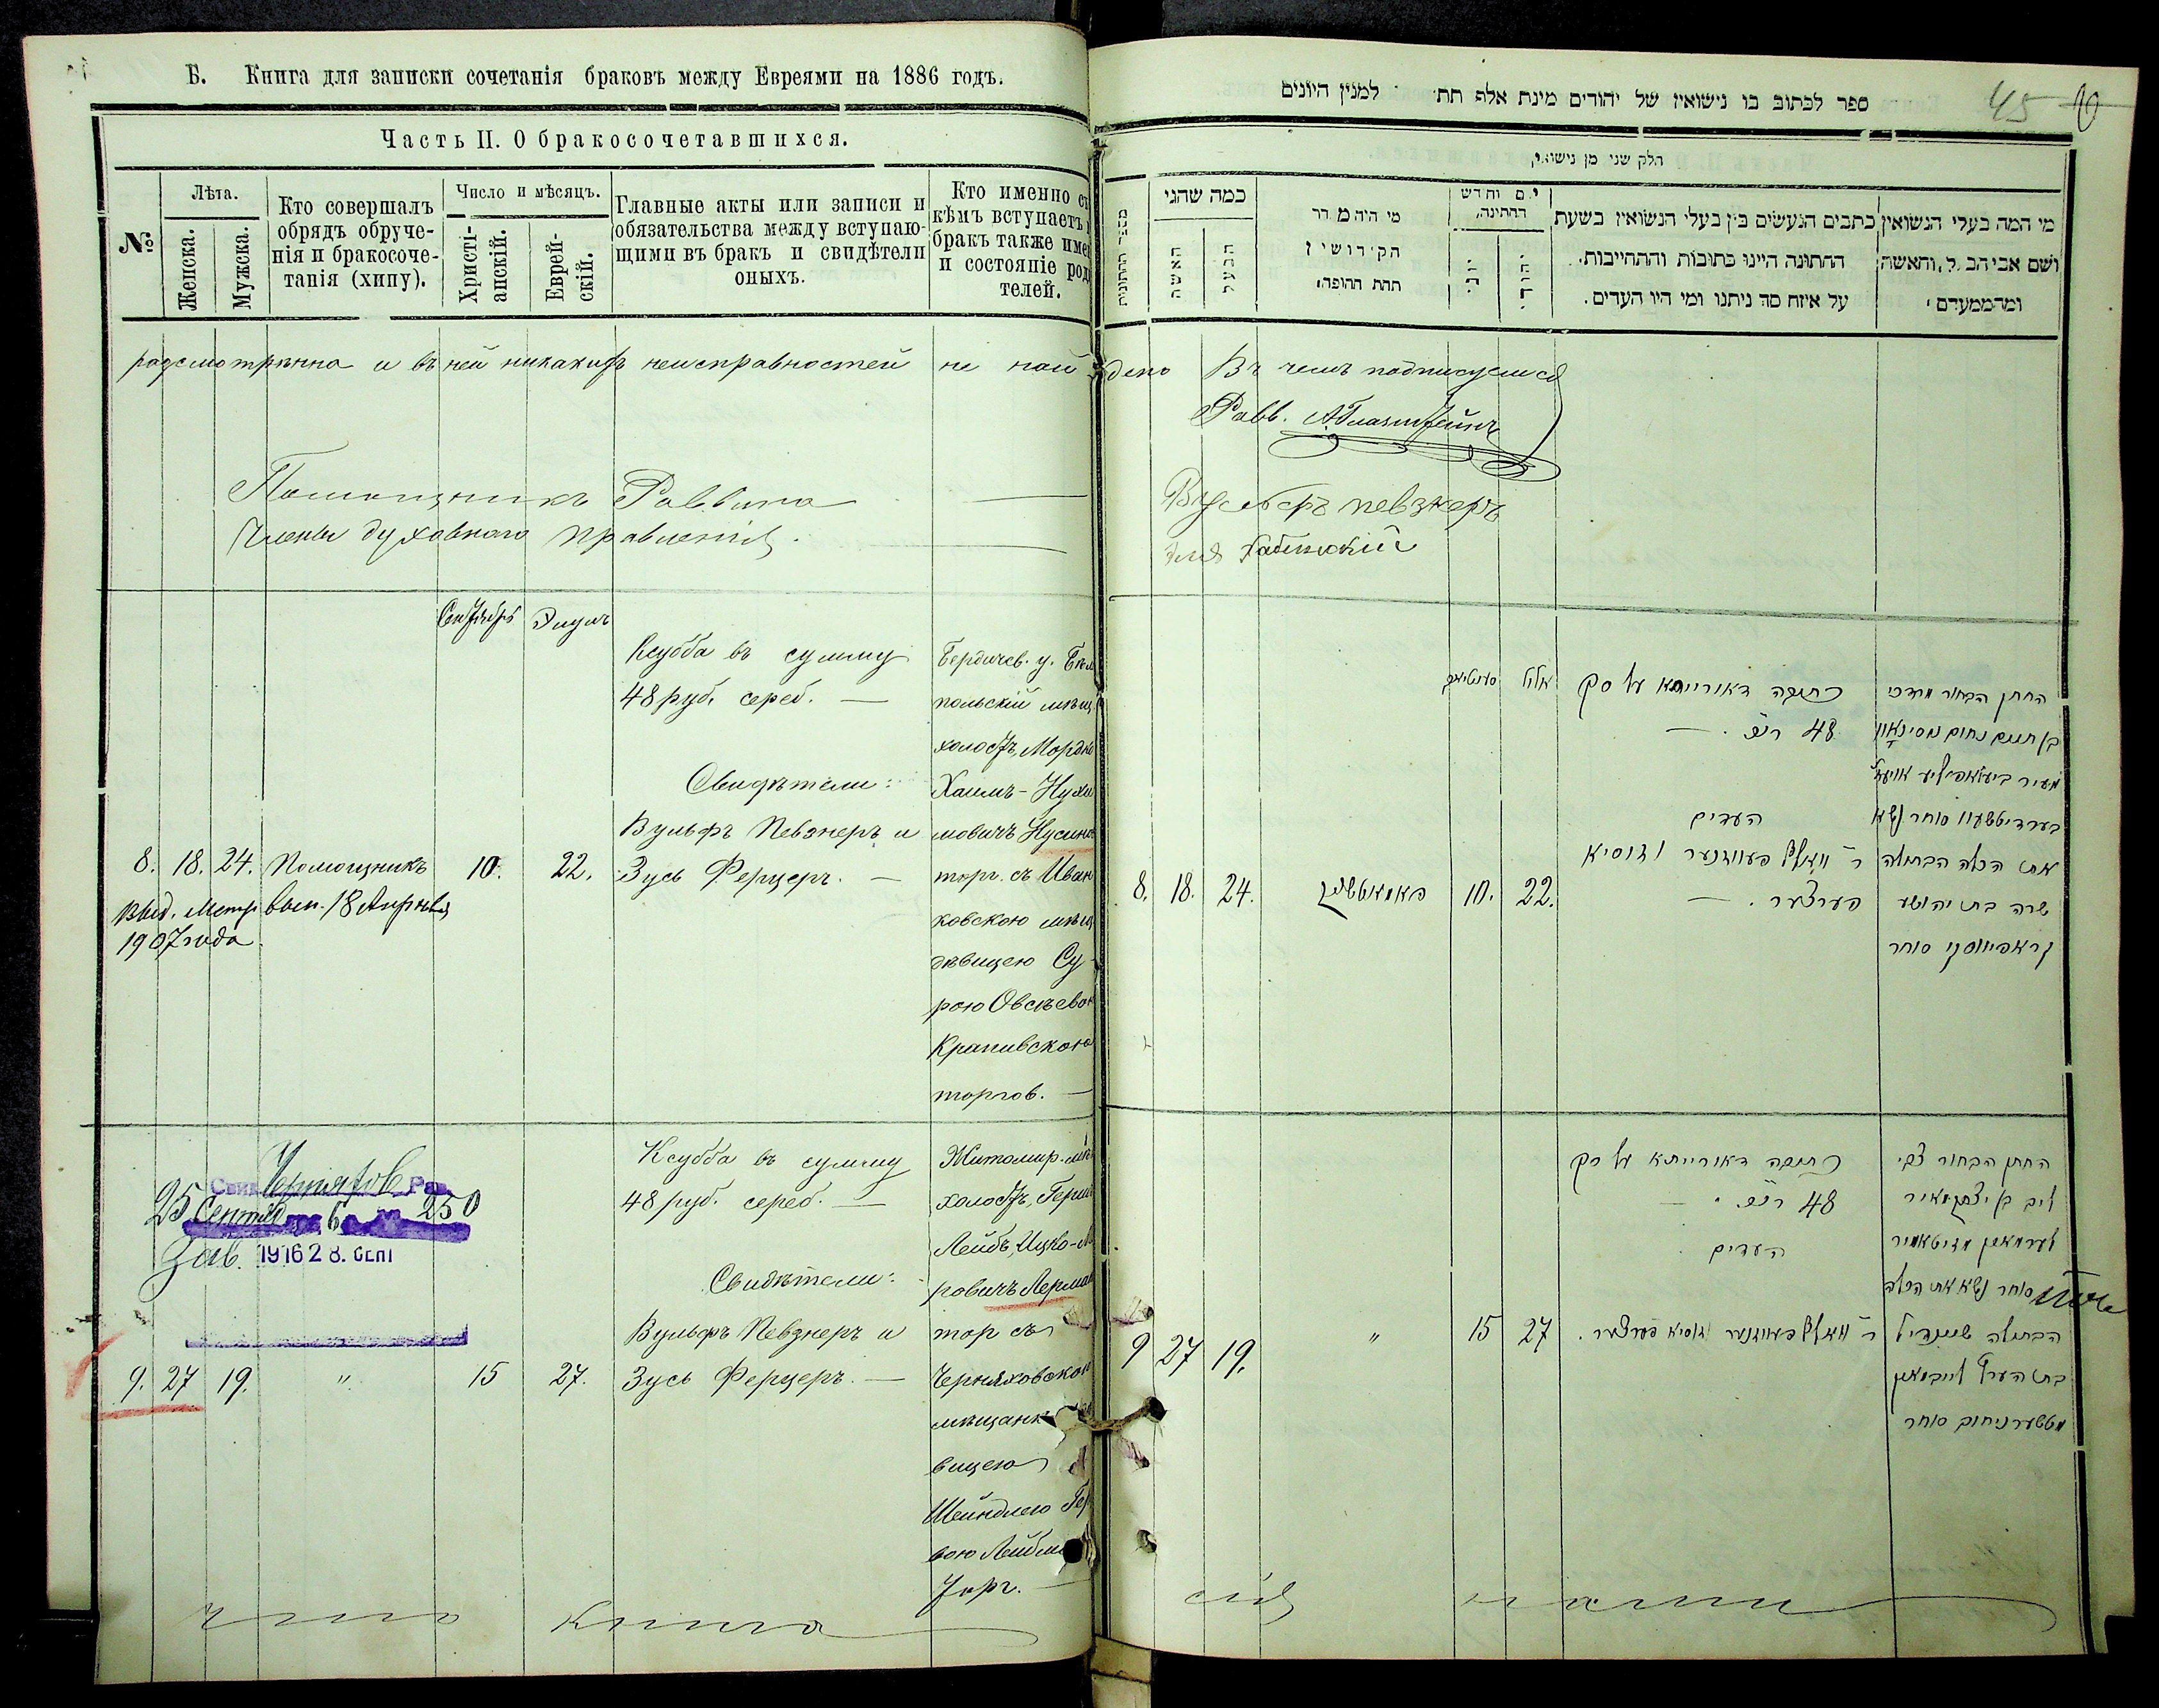 Б. Книга для записки сочетанія браковъ между Евреями на 1886 годъ.
Часть II. О бракосочетавшихся.
№
Лѣта.
Женска.
Мужска.
Кто совершалъ
обрядъ обруче-
нія и бракосоче-
танія (хипу).
Число и мѣсяцъ.
Христі-
анскій.
Еврей-
скій.
Главные акты или записи и
обязательства между вступаю-
щими въ бракъ и свидѣтели
оныхъ.
Кто именно съ
кѣмъ вступаетъ
бракъ также име
и состояніе род
телей.
разсмотрѣнна и въ ней никакихъ неисправностей не най
Помощникъ Раввина
Члены духовного правленія
Сентябрь
Элулъ
Ксубба въ сумму
48 руб. сереб. —
Свидѣтели:
Вульфъ Певзнеръ и
Зусь Ферцеръ. —
Бердичев. у. Бѣл
польскій мѣщ
холостъ, Мордко
Хаимъ-Нухи
мовичъ Нусино
торг. съ Иван
ковскою мѣщ
дѣвицею Су-
рою Овсѣевон
Крапивскою
торгов. —
8. 18. 24. Помощникъ 10. 22.
Выд. Метр. вып. 18 Апрѣля
1907 года
25 Сентяб 6 250
Зав. 1916 28. СЕНТ
Ксубба въ сумму
48 руб. сереб. —
Свидѣтели:
Вульфъ Певзнеръ и
Зусь Ферцеръ. —
Житомир. мѣ
холостъ, Герш
Лейбъ, Ицко-М
ровичъ Лерман
тор съ
Черняховскою
мѣщанк
вицею
Шейндлею Гер
вою Лейбма
Торг. —
9. 27 19. " 15 27.
книга
ספר לכתוב בו נישואין של יהודים מינת אלף תת למנין היונים
45
חלק שני מן נישואין
מספר החתונות
כמה שהגי
האשה
הבעל
מי היה מסדר
הקידושין
תחת החופה:
יום וחדש
החתונה.
יוני.
יהודי.
כתבים הנעשים בין בעלי הנשואין בשעת
החתונה היינו כתובות והתחייבות.
על איזה סך ניתנו ומי היו העדים.
מי המה בעלי הנשואין
ושם אביהב.ל. והאשה
ומהממעדם.
дено Въ чемъ подписуемся
Равв.
Вульфъ Певзнеръ
אלול
כתובה דאורייתא על סק
48 רו״כ. —
העדים
ר׳ וואלף פעווזנער וזוסיא
פערצער. —
החתן הבחור מרדכי
בן חיים נחום נוסינאוו
בערדיטשעוו סוחר נשא
את הכלה הבתולה
שרה בת יהושע
קראפיווסקי סוחר
8. 18. 24. 10. 22.
כתובה דאורייתא על סק
48 רו״כ. —
העדים
ר׳ וואלף פעווזנער וזוסיא פערצער.
החתן הבחור צבי
ליב בן יצחק מאיר
לערמאן מזיטאמיר
סוחר נשא את הכלה
הבתולה שיינדיל
בת הערץ לייבמאן
מטשערניחוב סוחר
9 27 19. " 15 27
сія